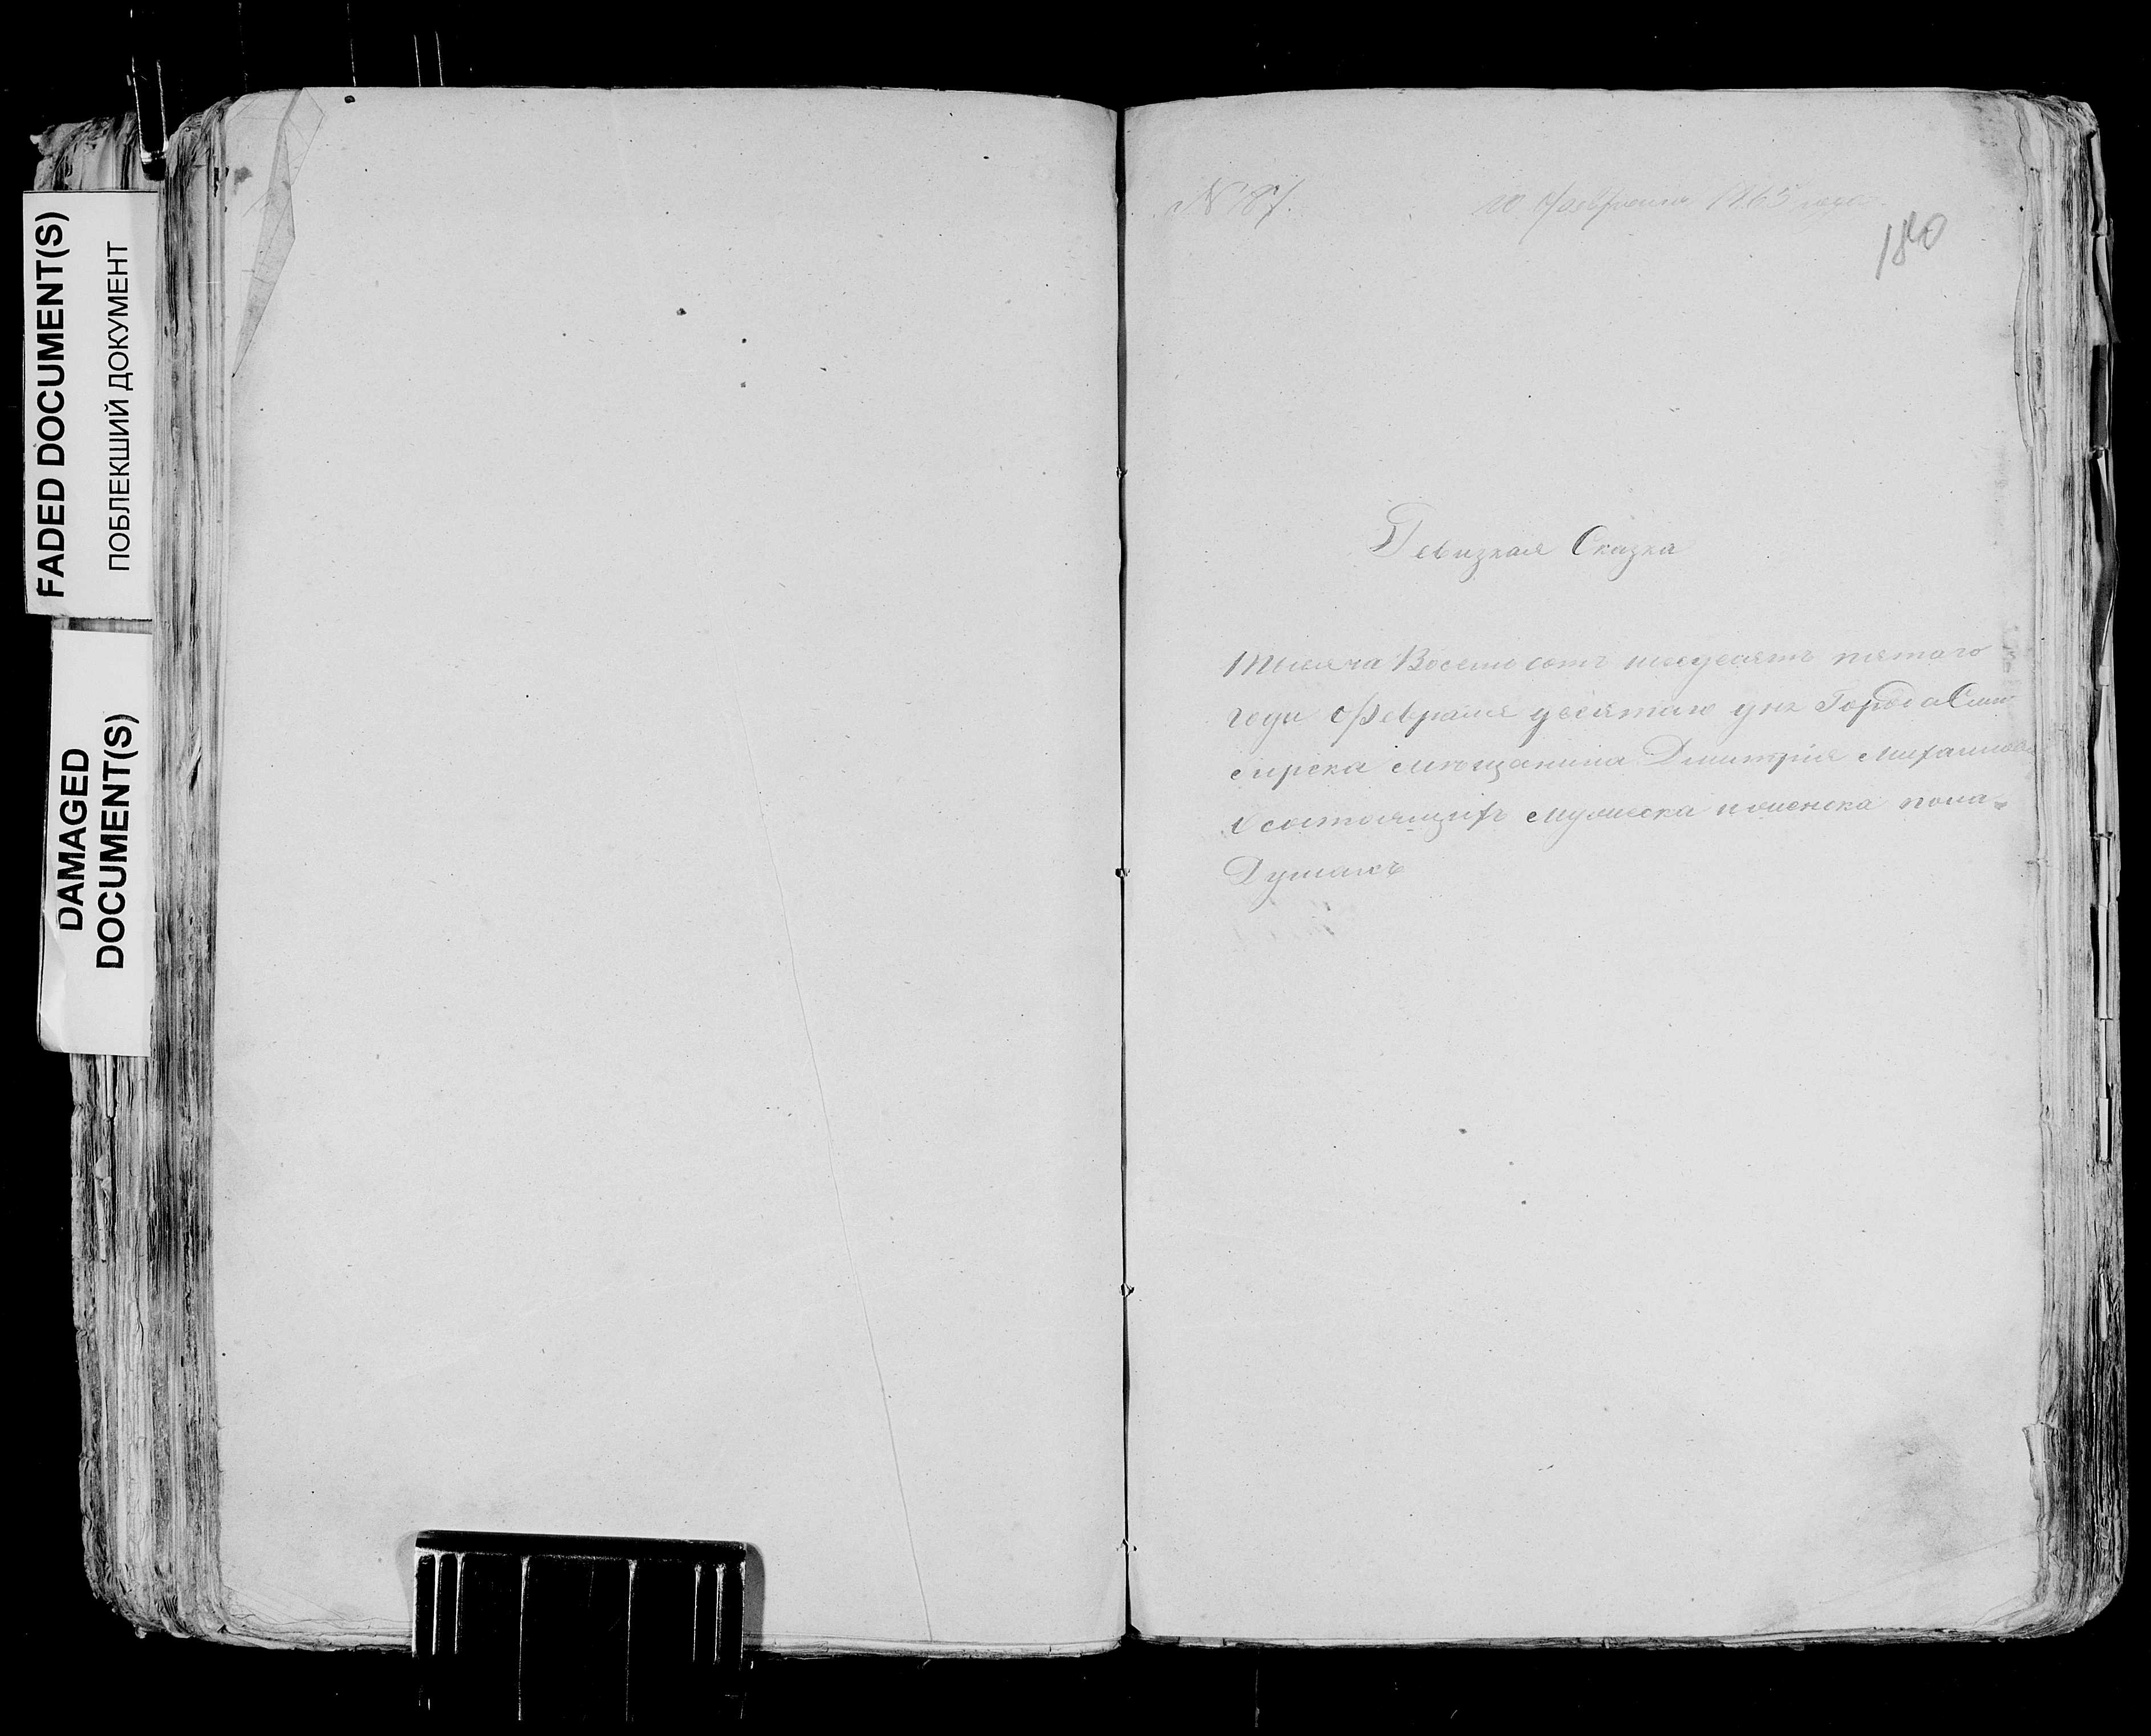 FADED DOCUMENT(S)
ПОБЛЕКШИЙ ДОКУМЕНТ
DAMAGED
DOCUMENT(S)
№ 187.
10 Февраля 1865 года.
180
Ревизкая Сказка
Тысяча Восемь сотъ шесдесятъ пятаго
года Февраля десятаго дня Города Сим
бирска мещанина Дмитрия Михаилова
О состоящихъ мужеска и женска пола
Душахъ